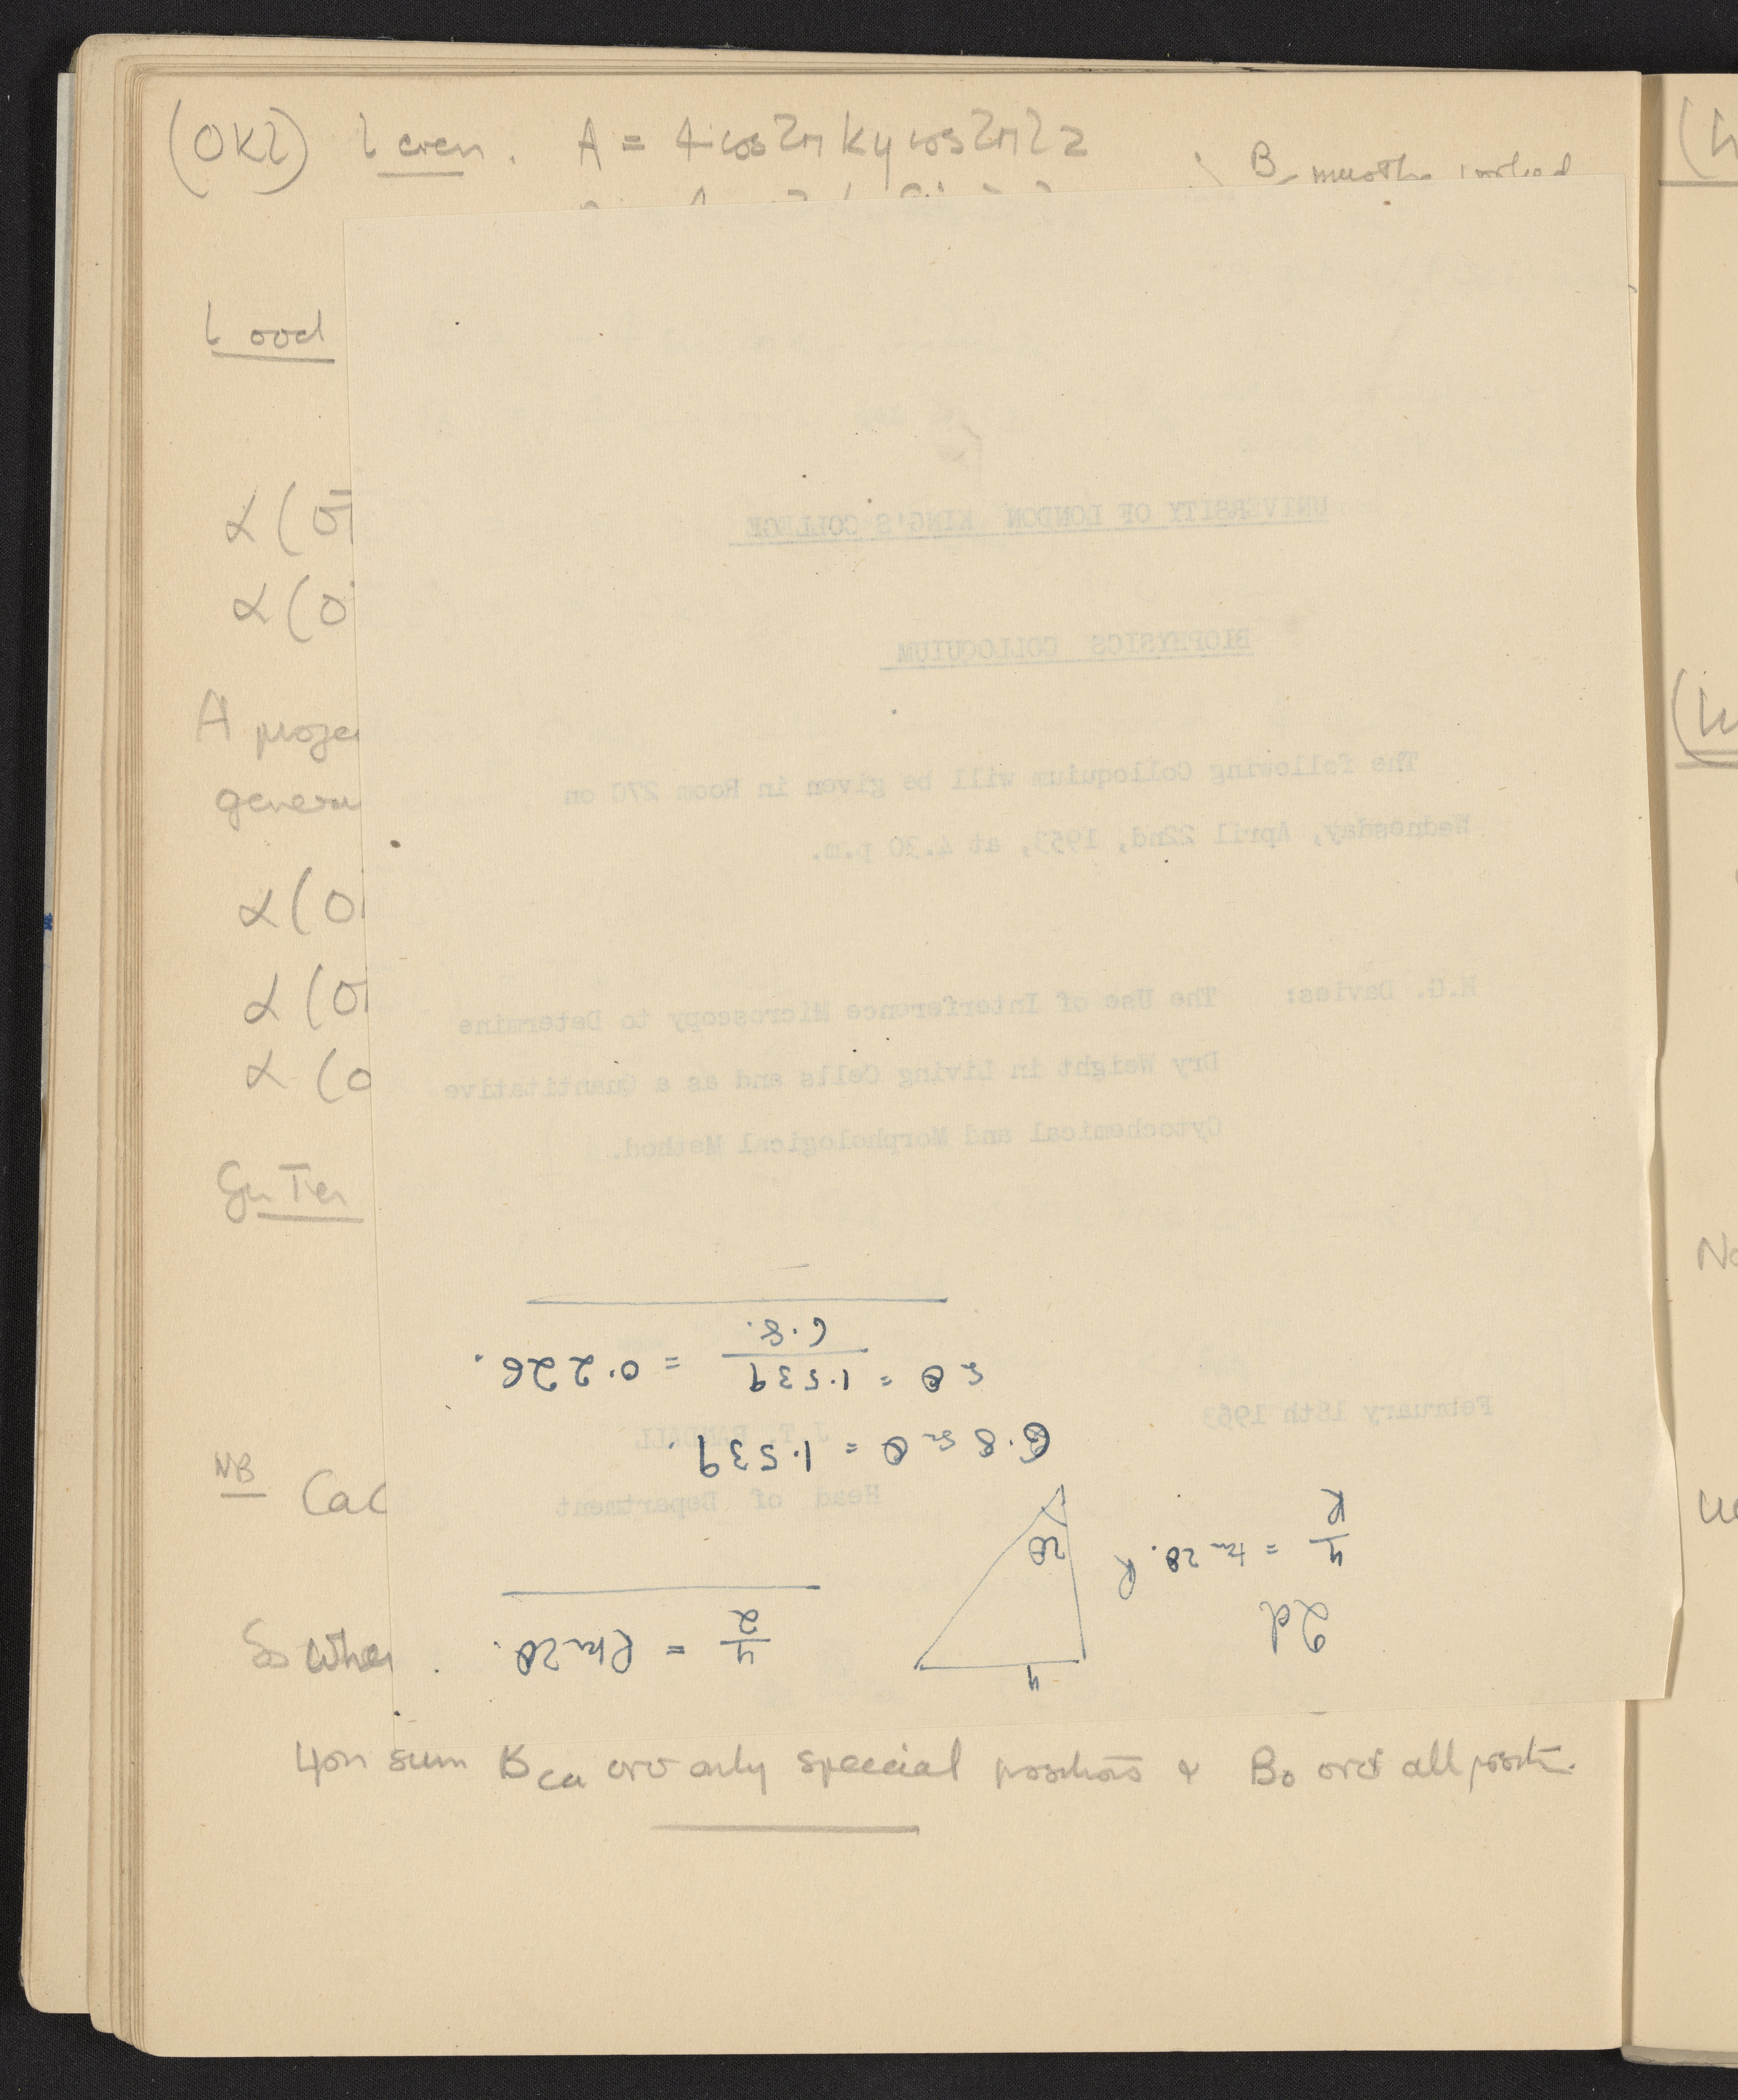 (0kl) l even. A = 4 cos2π ky cos2π lz
B must be
l odd
α(0
α(0
A projec
genera
α(0
α(0
α(0
UNIVERSITY OF LONDON KING'S COLLEGE
BIOPHYSICS COLLOQUIUM
The following Colloquium will be given in Room 270 on
Wednesday, April 22nd, 1953, at 4.30 p.m.
H.G. Davies: The Use of Interference Microscopy to Determine
Dry Weight in Living Cells and as a Quantitative
Cytochemical and Morphological Method.
February 18th 1953
J.T. RANDALL
Head of Department
y/2 = R tan 2θ.
y
2θ
R
2d
y/R = tan 2θ.
6.8 sin θ = 1.539.
sin θ = 1.539/6.8. = 0.226.
NB CaC
So when
4on sum BCa over only special positions & Bo over all posit.
(h
(h
No